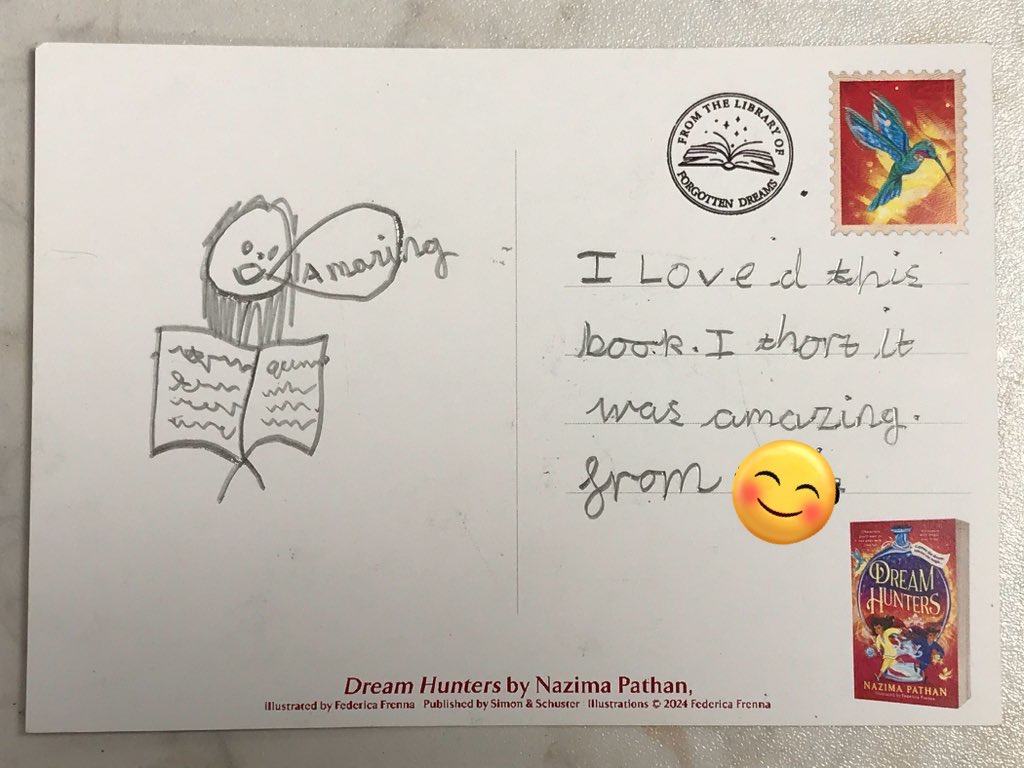 FROM THE LIBRARY OF
FORGOTTEN DREAMS
Amazing
I Loved this
book. I thort it
was amazing.
from
DREAM
HUNTERS
NAZIMA PATHAN
Dream Hunters by Nazima Pathan,
Illustrated by Federica Frenna Published by Simon & Schuster Illustrations © 2024 Federica Frenna